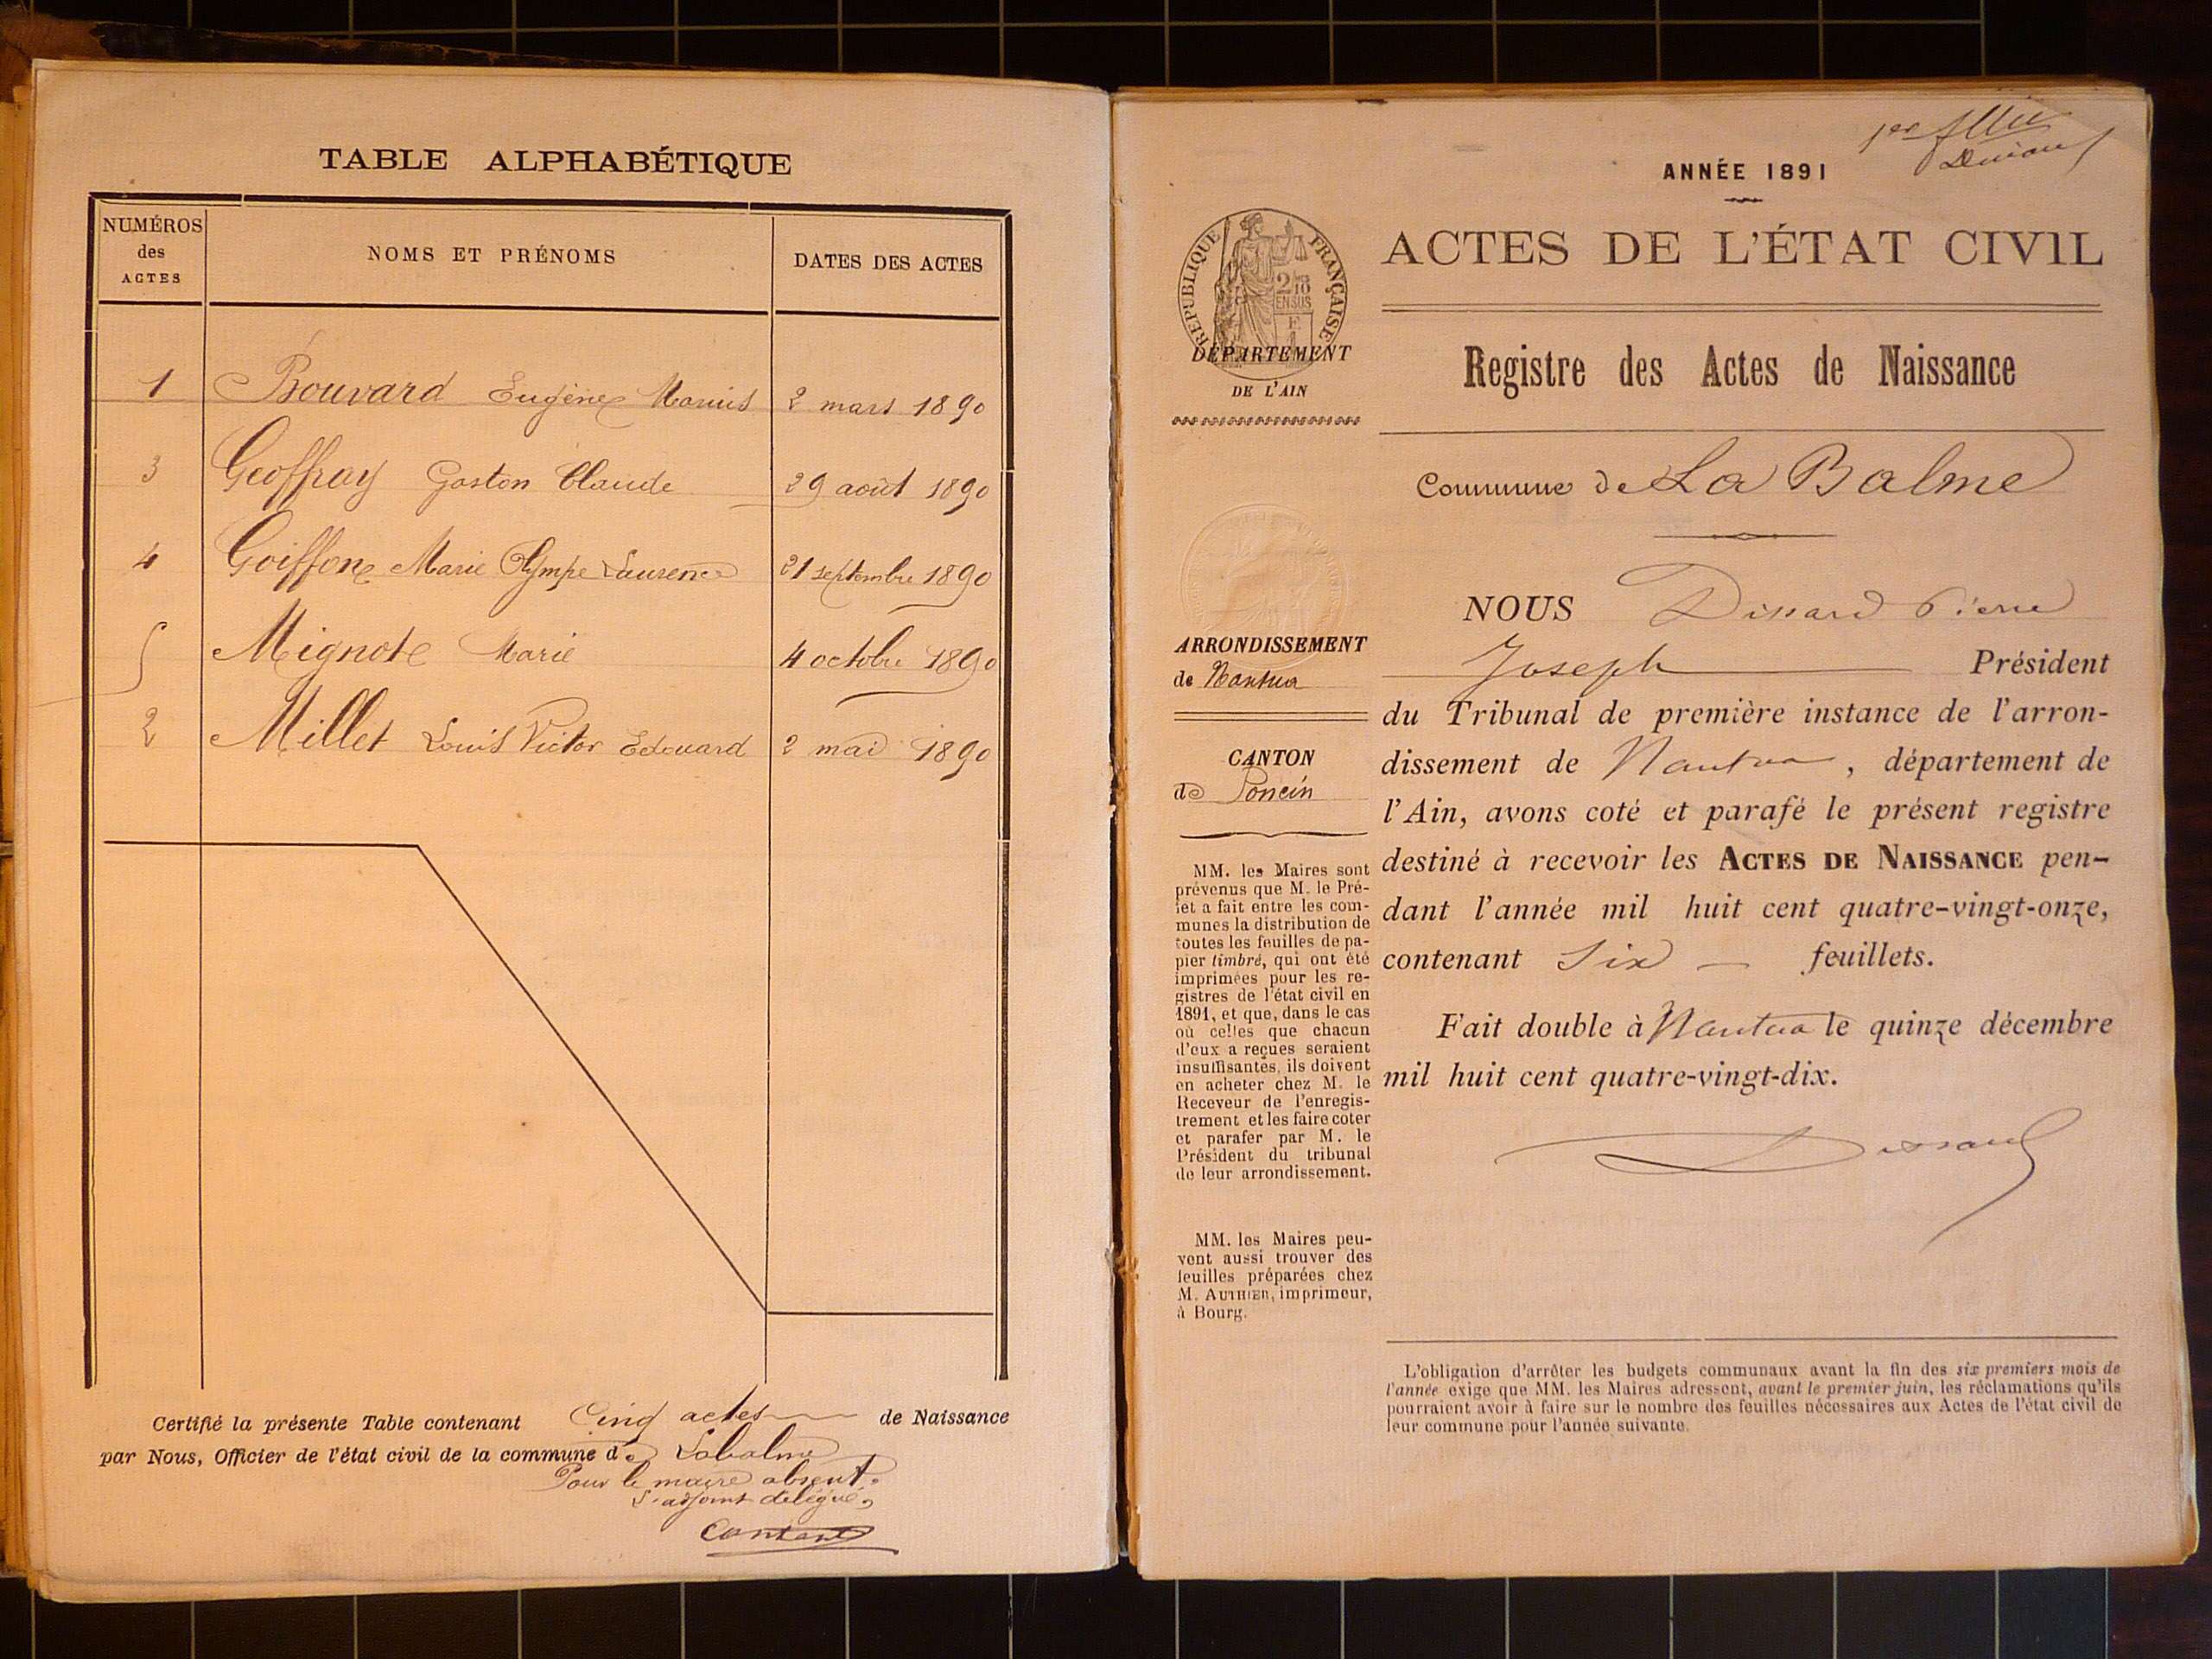 TABLE ALPHABÉTIQUE
NUMÉROS des ACTES
NOMS ET PRÉNOMS
DATES DES ACTES
1 Bouvard Eugène Marius 2 mars 1890
3 Geoffray Gaston Claude 29 août 1890
4 Goiffon Marie Olympe Laurence 21 septembre 1890
5 Mignote Marie 4 octobre 1890
2 Millet Louis Victor Edouard 2 mai 1890
Certifié la présente Table contenant Cinq actes de Naissance
par Nous, Officier de l'état civil de la commune de Labalme
Pour le maire absent.
L'adjoint délégué,
1er
ANNÉE 1891
RÉPUBLIQUE FRANÇAISE
2/10
EN SUS
E
DÉPARTEMENT
DE L'AIN
ACTES DE L'ÉTAT CIVIL
Registre des Actes de Naissance
Commune de La Balme
ARRONDISSEMENT
de Nantua
CANTON
de Poncin
MM. les Maires sont
prévenus que M. le Pré-
fet a fait entre les com-
munes la distribution de
toutes les feuilles de pa-
pier timbré, qui ont été
imprimées pour les re-
gistres de l'état civil en
1891, et que, dans le cas
où celles que chacun
d'eux a reçues seraient
insuffisantes, ils doivent
en acheter chez M. le
Receveur de l'enregis-
trement et les faire coter
et parafer par M. le
Président du tribunal
de leur arrondissement.
MM. les Maires peu-
vent aussi trouver des
feuilles préparées chez
M. AUTHIER, imprimeur,
à Bourg.
NOUS Dissard Pierre
Joseph Président
du Tribunal de première instance de l'arron-
dissement de Nantua, département de
l'Ain, avons coté et parafé le présent registre
destiné à recevoir les ACTES DE NAISSANCE pen-
dant l'année mil huit cent quatre-vingt-onze,
contenant Six feuillets.
Fait double à Nantua le quinze décembre
mil huit cent quatre-vingt-dix.
Dissard
L'obligation d'arrêter les budgets communaux avant la fin des six premiers mois de
l'année exige que MM. les Maires adressent, avant le premier juin, les réclamations qu'ils
pourraient avoir à faire sur le nombre des feuilles nécessaires aux Actes de l'état civil de
leur commune pour l'année suivante.